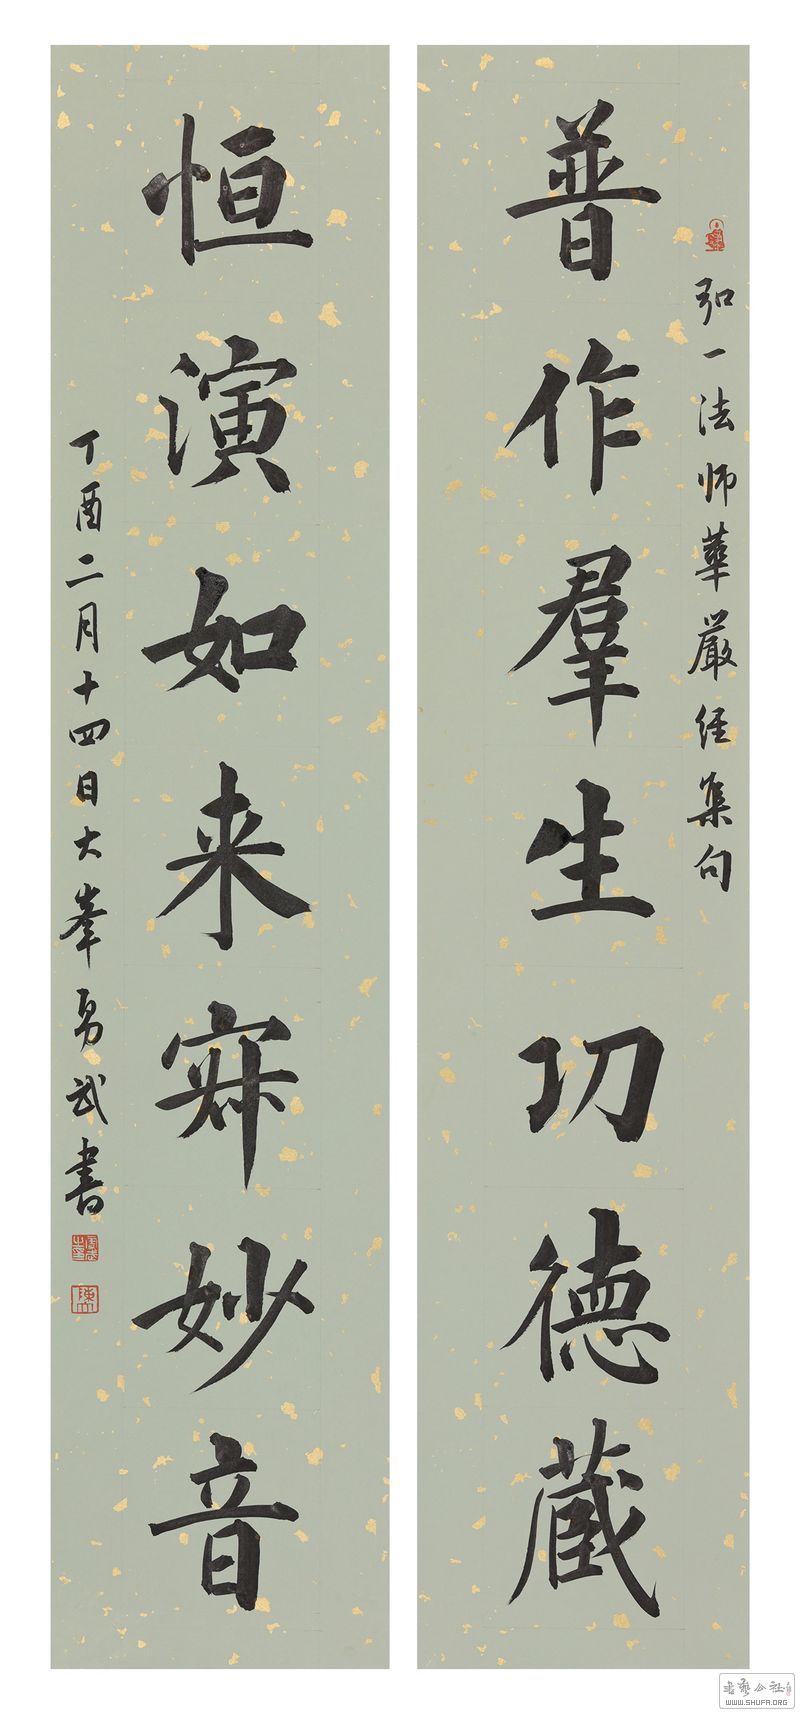 弘一法师華嚴经集句
普作羣生功德蔵
恒演如来寂妙音
丁酉二月十四日大峯勇武書
WWW.SHUFA.ORG